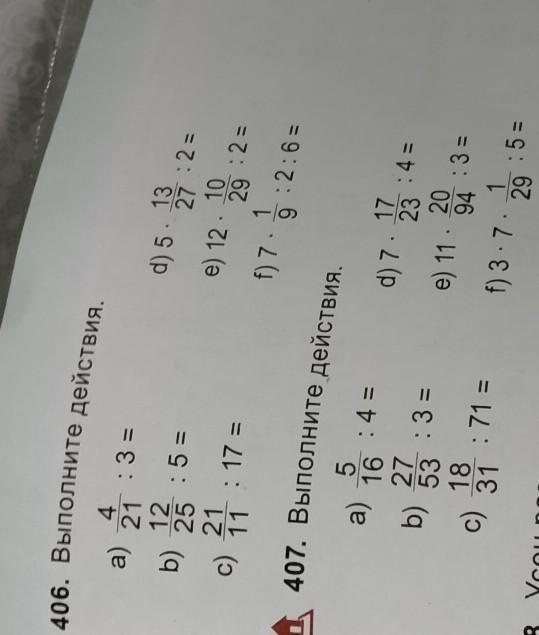 406. Выполните действия.
a) 4/21 : 3 =
b) 12/25 : 5 =
c) 21/11 : 17 =
d) 5 · 13/27 : 2 =
e) 12 · 10/29 : 2 =
f) 7 · 1/9 : 2 : 6 =
407. Выполните действия.
a) 5/16 : 4 =
b) 27/53 : 3 =
c) 18/31 : 71 =
d) 7 · 17/23 : 4 =
e) 11 · 20/94 : 3 =
f) 3 · 7 · 1/29 : 5 =